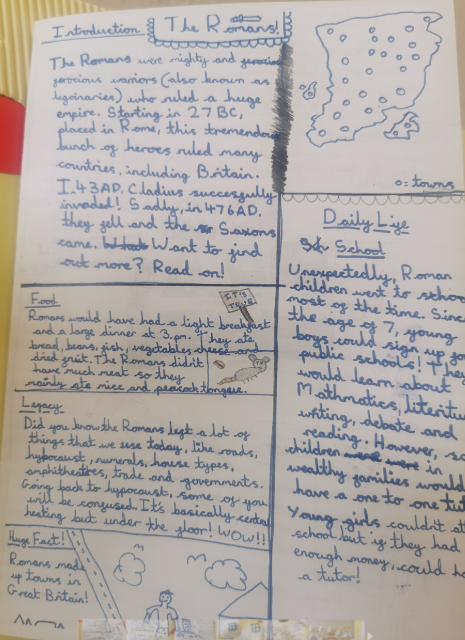 Introduction
The Romans!
The Romans were mighty and
ferocious warriors (also known as
legionaries) who ruled a huge
empire. Starting in 27 BC,
placed in Rome, this tremendous
bunch of heroes ruled many
countries, including Britain.
I.43AD, Cladius succesfully
invaded! Sadly, in 476AD,
they fell and the Saxons
came. Want to find
out more? Read on!
o: towns
Food
IT'S
TRUE
Romans would have had a light breakfast
and a large dinner at 3.pm. They ate
bread, beans, fish, vegetables cheese and
dried fruit. The Romans didn't
have much meat so they
mainly ate mice and peacock tongue.
Legacy
Did you know the Romans left a lot of
things that we use today, like roads,
hypocaust, numerals, house types,
amphitheatres, trade and governments.
Going back to hypocaust, some of you
will be confused. It's basically central
heating but under the floor! WOW!!
Huge Fact!
Romans made
up towns in
Great Britain!
Daily Life
School
Unexpectedly, Roman
children went to school
most of the time. Since
the age of 7, young
boys could sign up for
public schools! They
would learn about
Mathmatics, literature
writing, debate and
reading. However,
children in
wealthy families would
have a one to one
Young girls couldn't
school but if they had
enough money, could
a tutor!